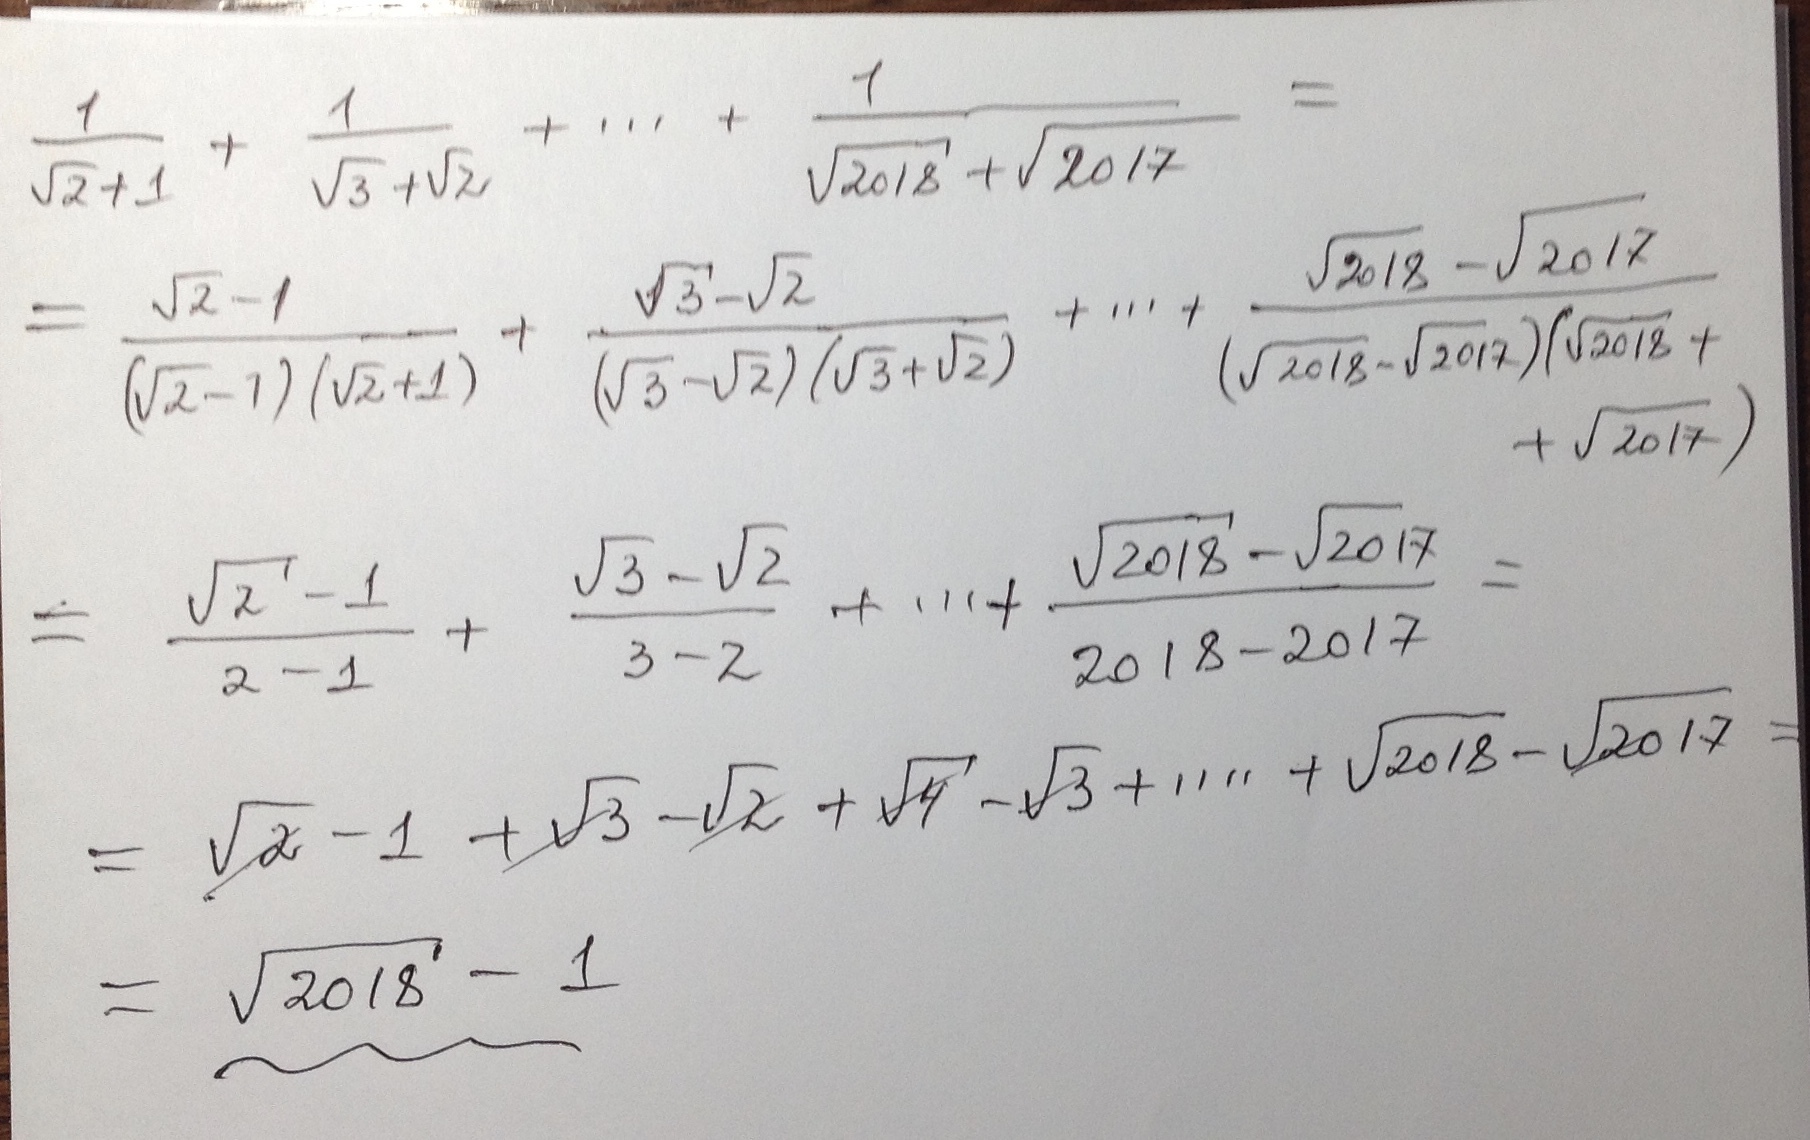 1/(√2+1) + 1/(√3+√2) + ... + 1/(√2018+√2017) =
= (√2-1)/((√2-1)(√2+1)) + (√3-√2)/((√3-√2)(√3+√2)) + ... + (√2018-√2017)/((√2018-√2017)(√2018+
+√2017))
= (√2-1)/(2-1) + (√3-√2)/(3-2) + ... + (√2018-√2017)/(2018-2017) =
= √2-1+√3-√2+√4-√3+....+√2018-√2017 =
= √2018-1